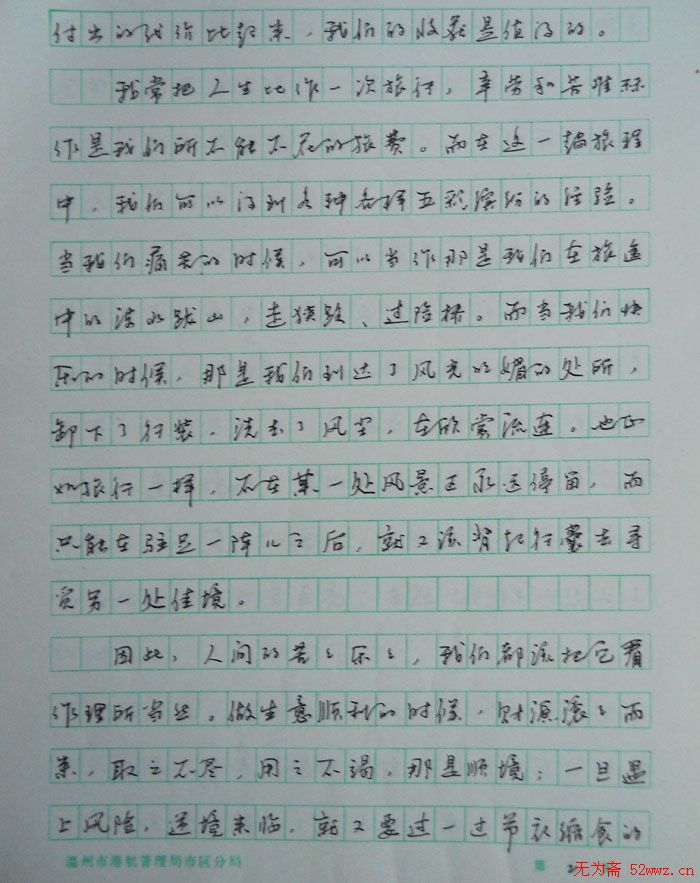 付出的代价比起来，我们的收获是值得的。
我常把人生比作一次旅行，辛劳和苦难
作是我们所不能不花的旅费。而在这一趟旅程
中，我们可以得到各种各样五彩缤纷的经验。
当我们痛苦的时候，可以当作那是我们在旅途
中的涉水跋山，走狭路、过险桥。而当我们快
乐的时候，那是我们到达了风光明媚的处所，
卸下了行装，洗去了风尘，在欣赏流连。也正
如旅行一样，不在某一处风景区永远停留，而
只能在驻足一阵儿之后，就又该背起行囊去寻
觅另一处佳境。
因此，人间的苦苦乐乐，我们都该把它看
作理所当然。做生意顺利的时候，财源滚滚而
来，取之不尽，用之不竭，那是顺境；一旦遇
上风险，逆境来临，就又要过一过节衣缩食的
温州市港航管理局市区分局 第 2
无为斋 52wwz.cn